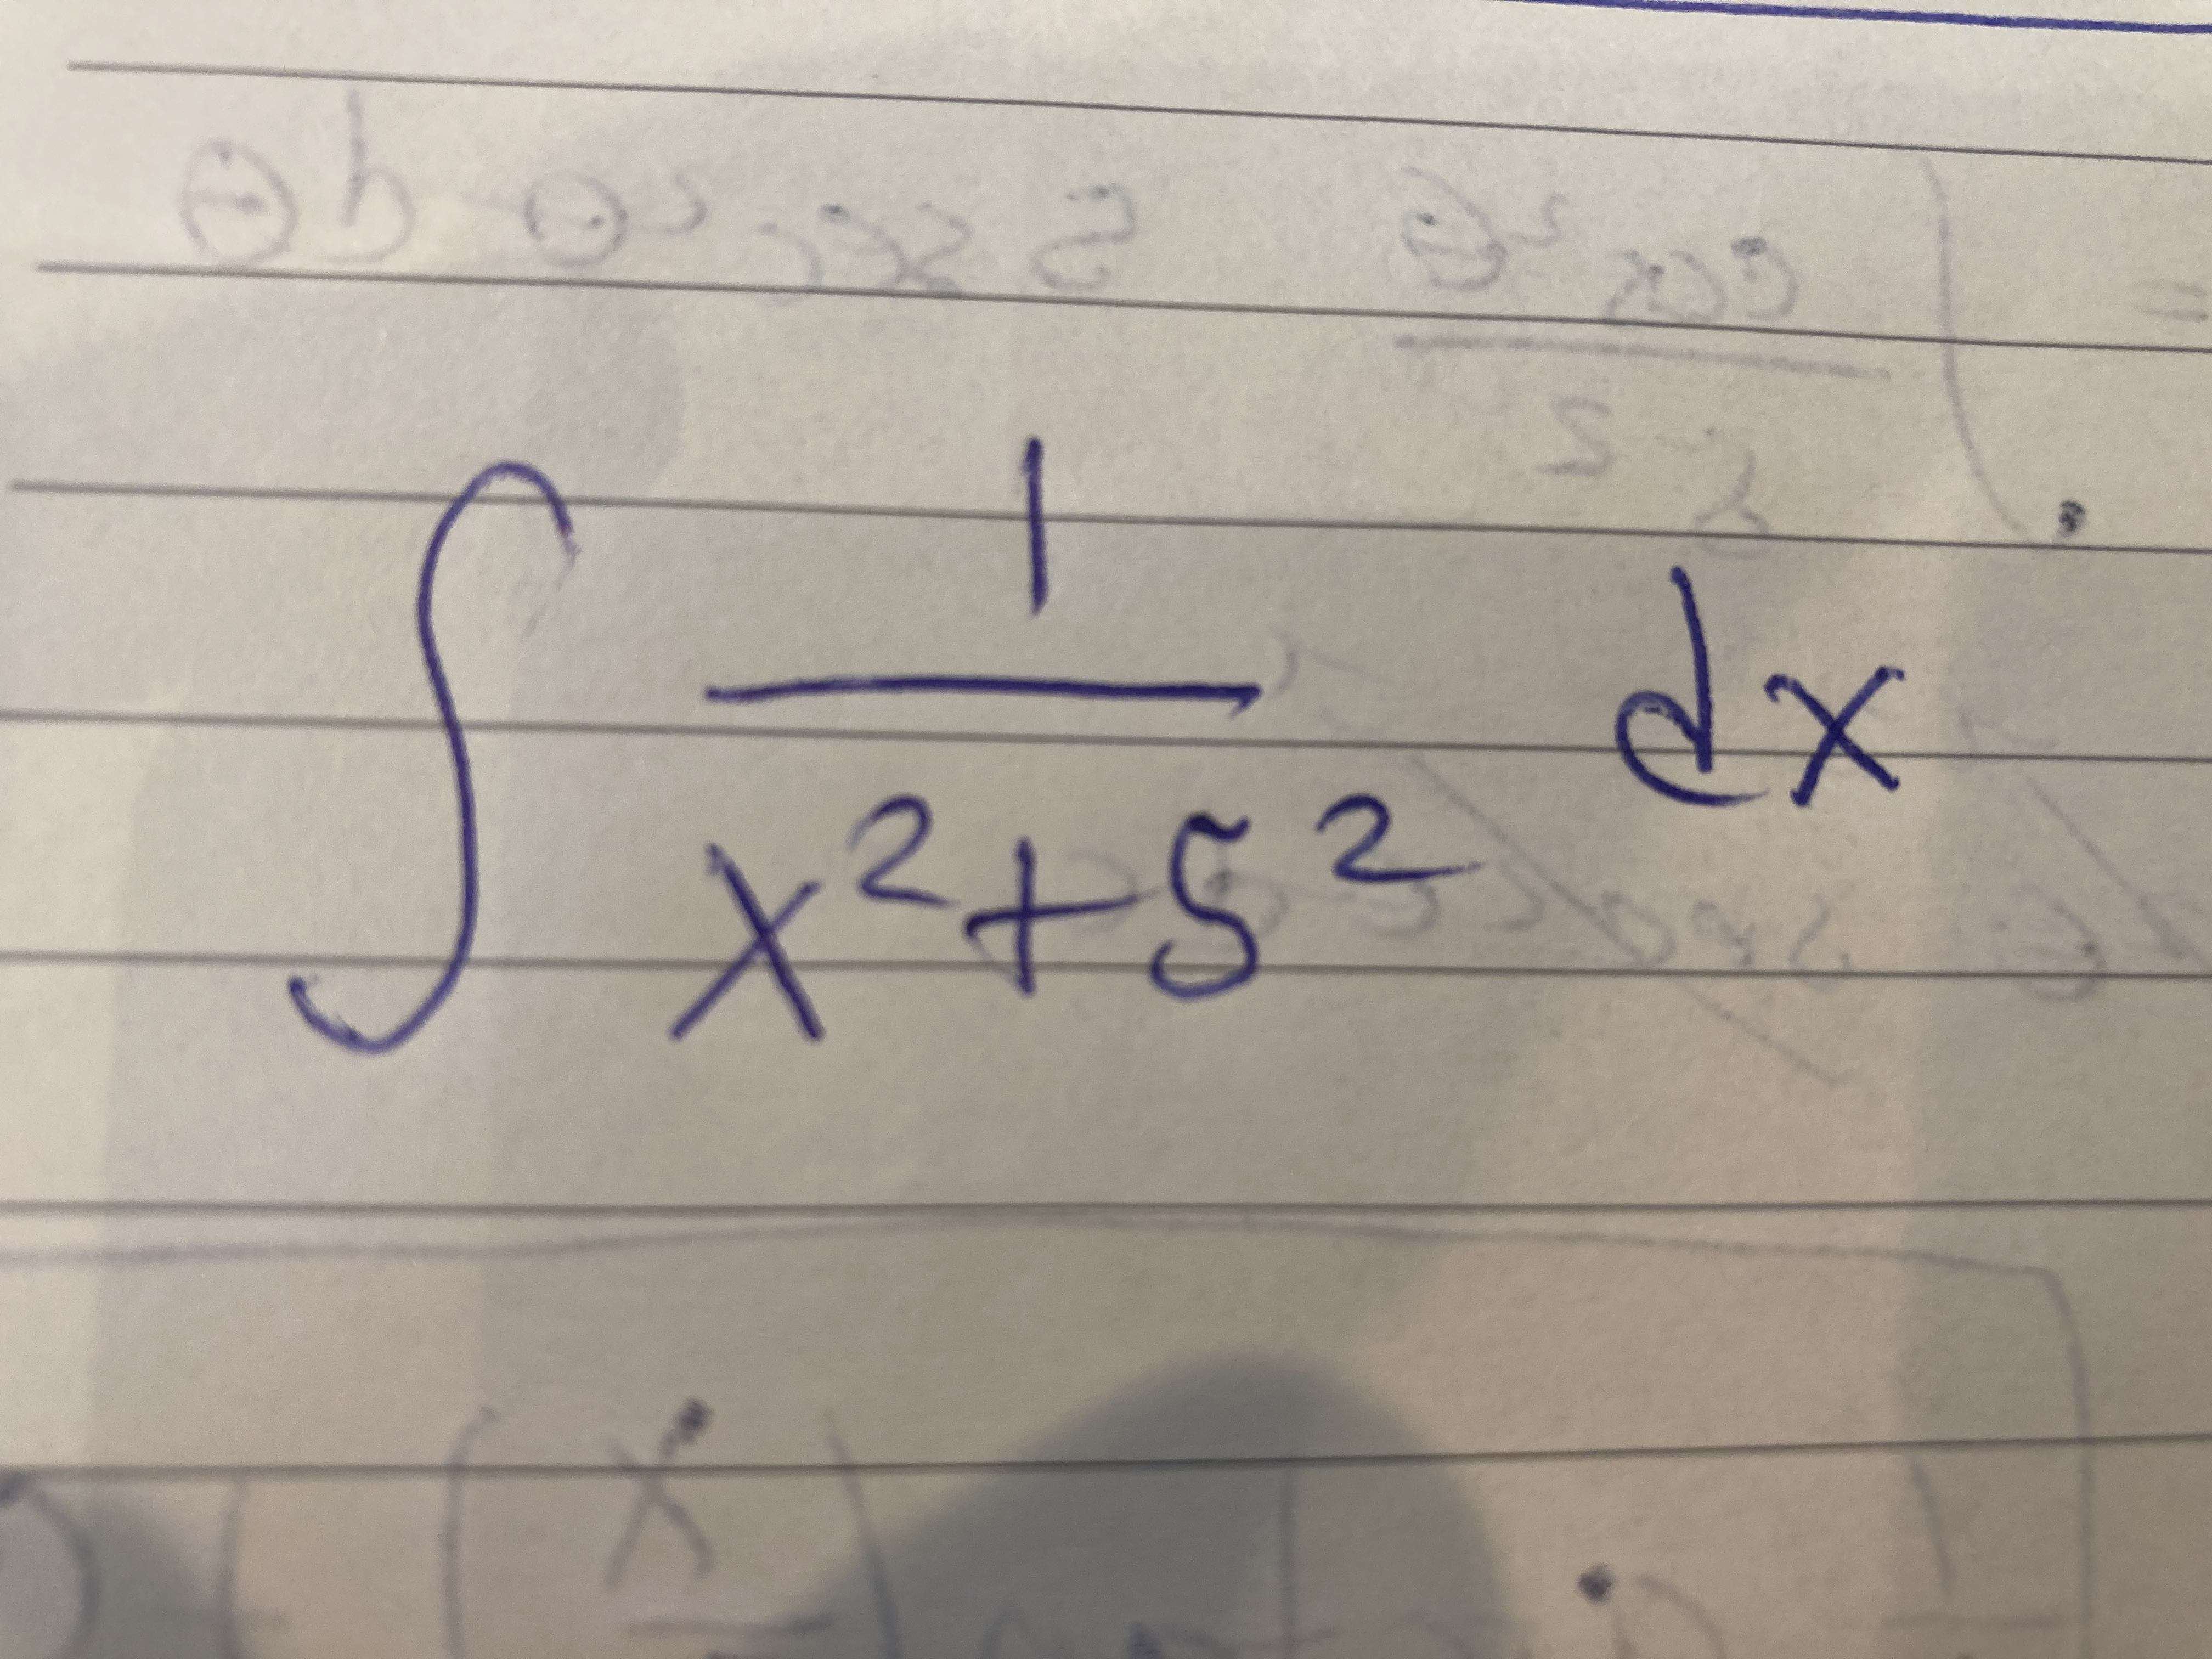 ∫ 1/(x²+5²) dx